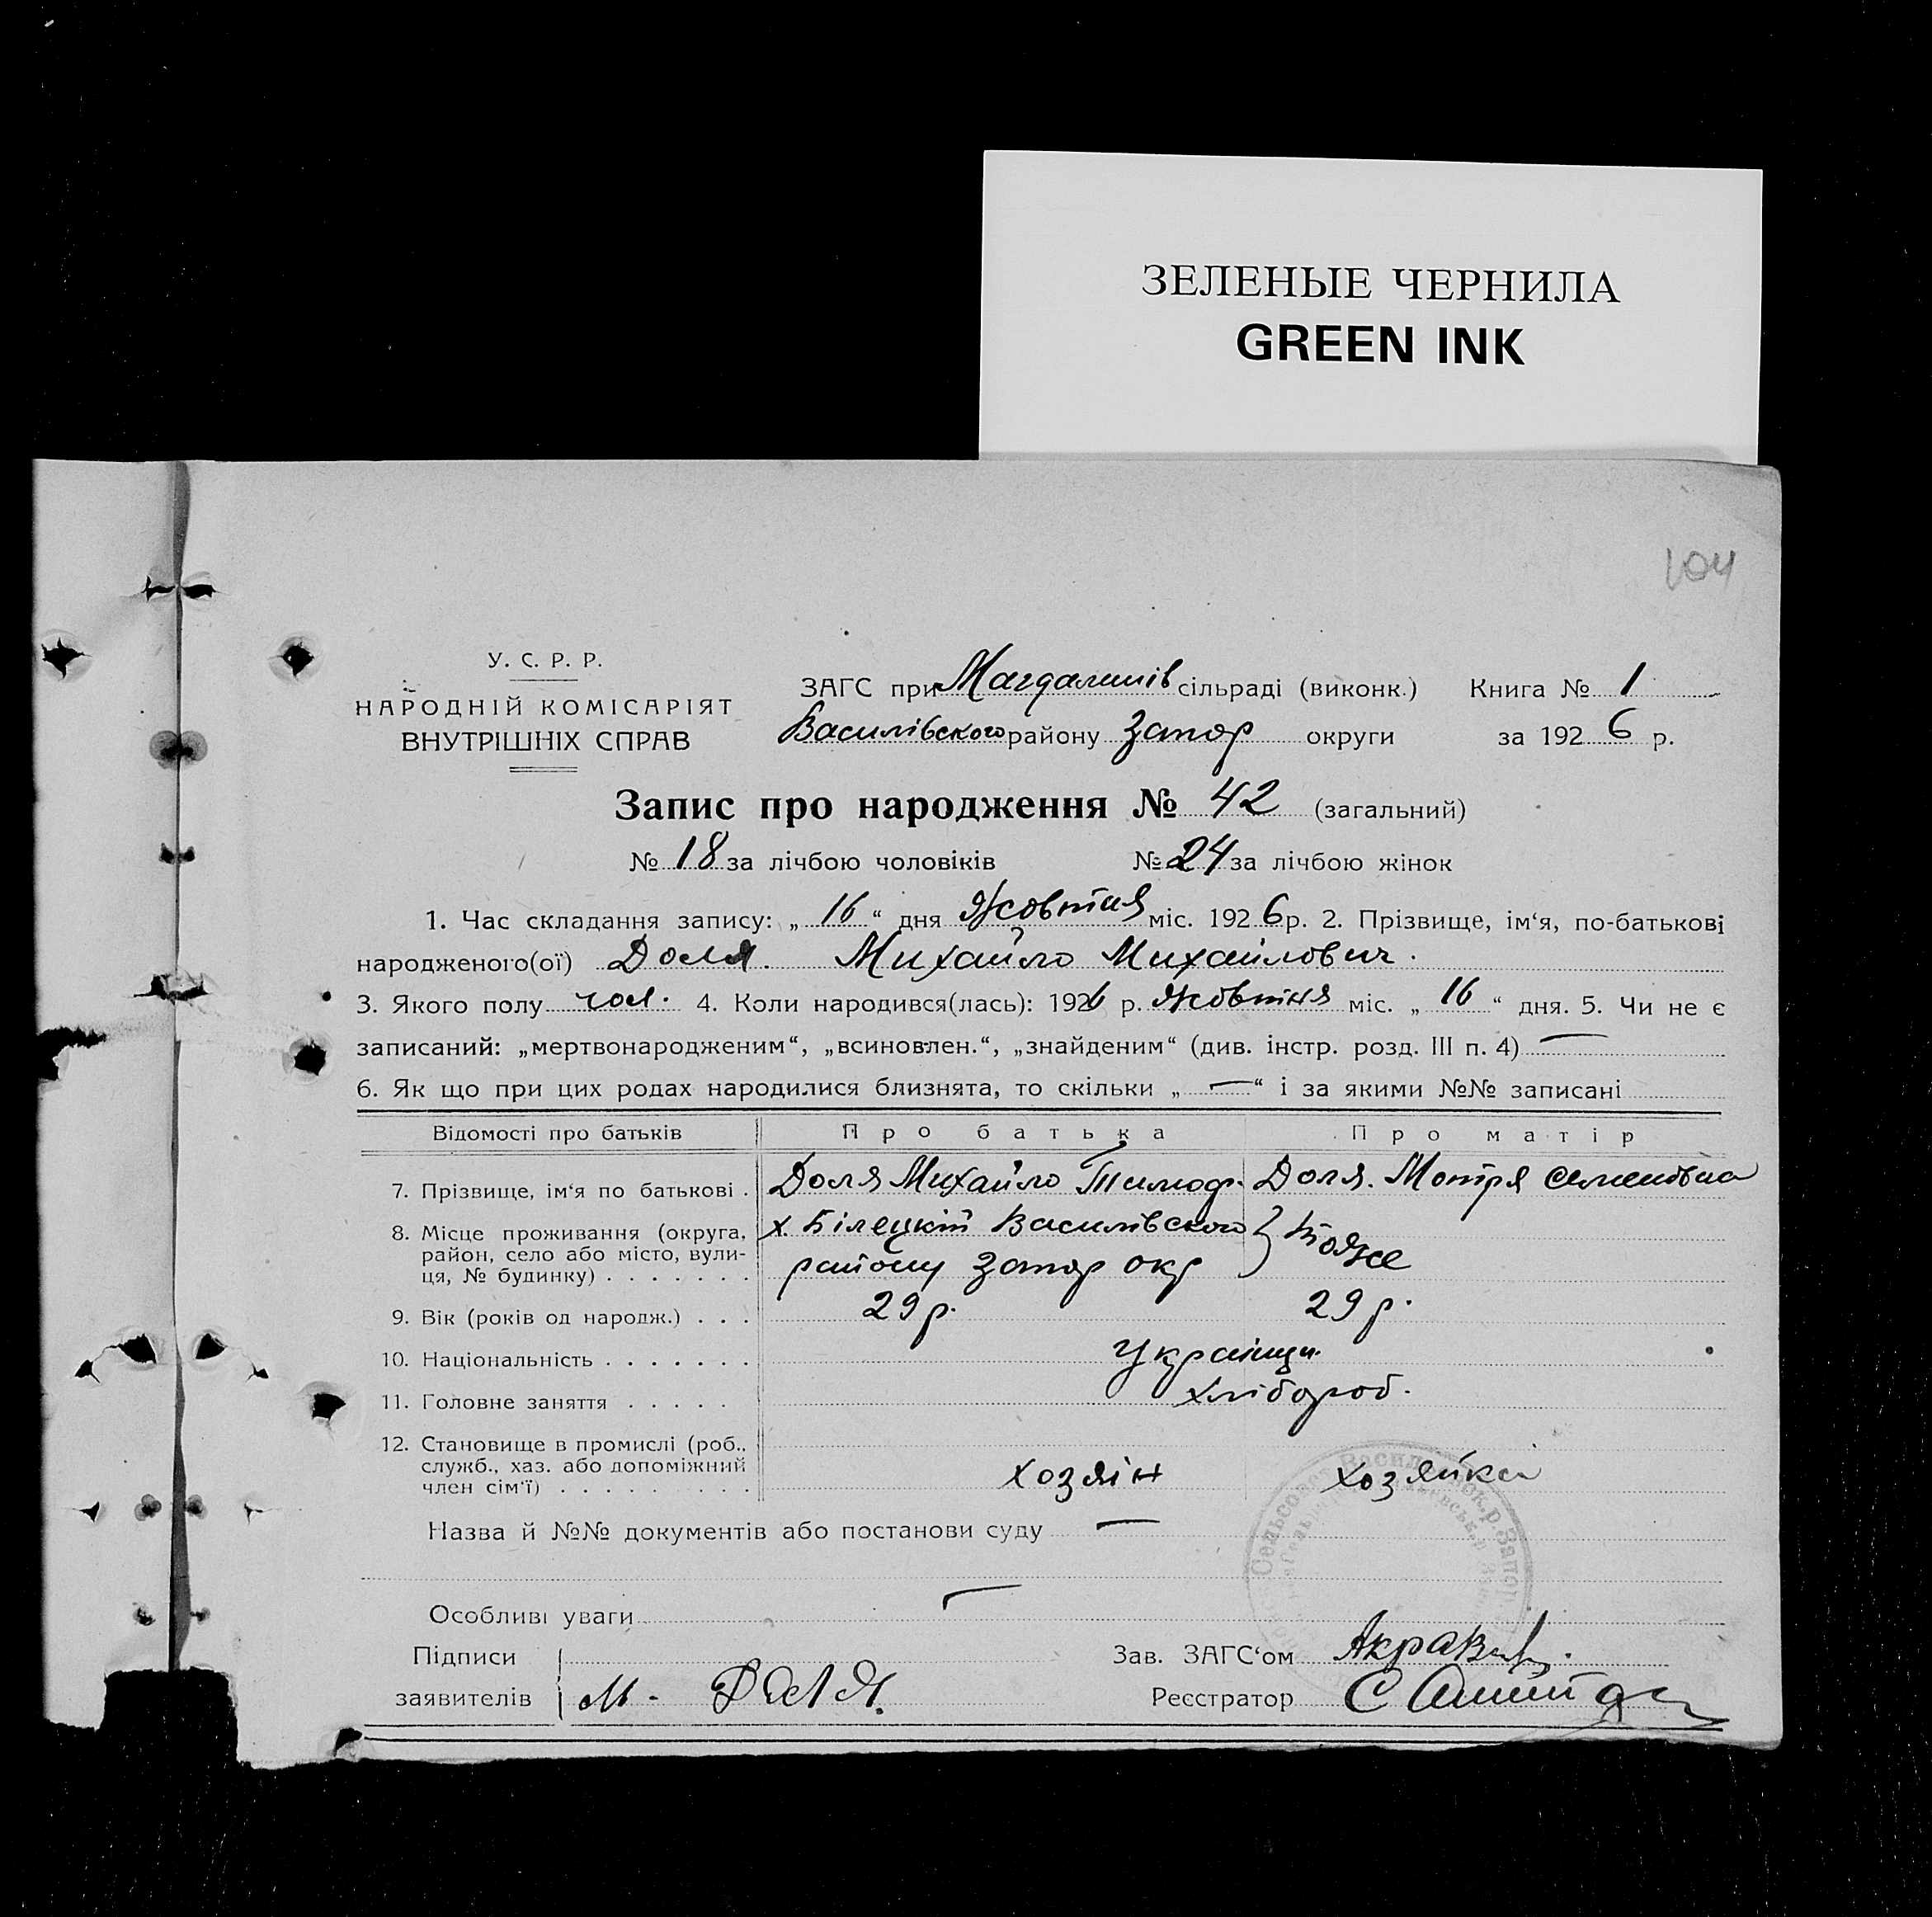 ЗЕЛЕНЫЕ ЧЕРНИЛА
GREEN INK
104
У. С. Р. Р.
НАРОДНІЙ КОМІСАРІЯТ
ВНУТРІШНІХ СПРАВ
ЗАГС при Магдалинів сільраді (виконк.) Книга № 1
Василівского району Запор округи за 1926 р.
Запис про народження № 42 (загальний)
№ 18 за лічбою чоловіків № 24 за лічбою жінок
1. Час складання запису: „16“ дня Жовтня міс. 1926 р. 2. Прізвище, ім‘я, по-батькові
народженого(ої) Доля. Михайло Михайлович.
3. Якого полу чол. 4. Коли народився(лась): 1926 р. Жовтня міс. „16“ дня. 5. Чи не є
записаний: „мертвонародженим“, „всиновлен.“, „знайденим“ (див. інстр. розд. III п. 4) —
6. Як що при цих родах народилися близнята, то скільки „—“ і за якими №№ записані
Відомості про батьків Про батька Про матір
7. Прізвище, ім‘я по батькові . Доля Михайло Тимоф. Доля. Мотря Семеновна
8. Місце проживання (округа, х. Білецкій Василівского } Тоже
район, село або місто, вули- району Запор окр
ця, № будинку) . . . . . . .
9. Вік (років од народж.) . . . 29 р. 29 р.
10. Національність . . . . . . . Українци
11. Головне заняття . . . . . хлібороб.
12. Становище в промислі (роб.,
служб., хаз. або допоміжний хозяін хозяйка
член сім‘ї) . . . . . . . . .
Назва й №№ документів або постанови суду —
Особливі уваги —
Підписи Зав. ЗАГС‘ом
заявителів М. Доля. Реєстратор С